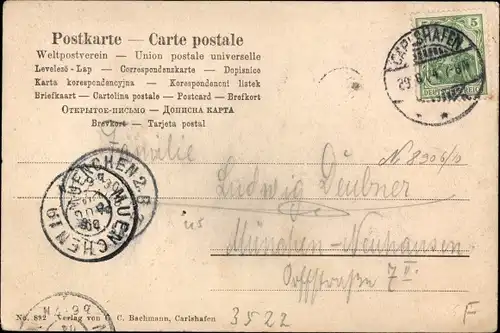 Postkarte — Carte postale
Weltpostverein — Union postale universelle
Levelező-Lap — Correspondenskarte — Dopisnice
Karta korespondencyjna — Korespondenčni listek
Briefkaart — Cartolina postale — Postcard — Brefkort
Открытое-письмо — Дописна карта
Brevkort — Tarjeta postal
5 5
DEUTSCHES REICH
CARLSHAFEN
Familie
N. 8306/10
Ludwig Deubner
München-Neuhausen
Orffstraße 7 II
MUENCHEN 2. B.Z.
MUENCHEN 19
No. 892 Verlag von C. C. Bachmann, Carlshafen
3522
F